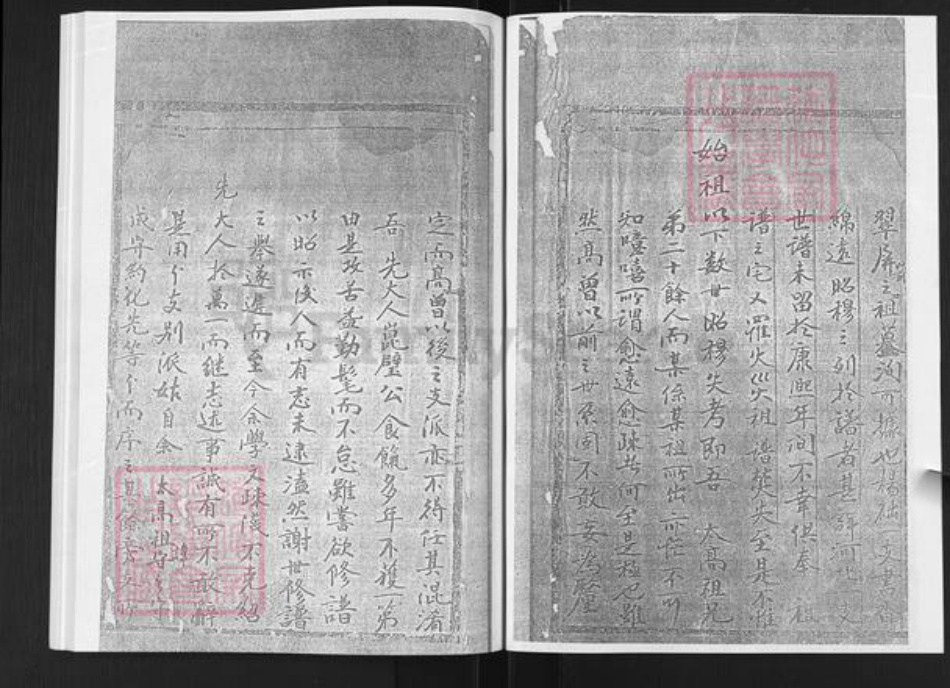 翠屏之祖墓洵可據也楊
綿遠昭穆之列於譜者甚
世譜未留於康熙年間不幸俱奉 祖
譜之宅又罹火災祖譜焚失至是不惟
始祖以下数世昭穆失考即吾 太高祖兄
弟二十餘人而某係某祖所出亦茫不可
知噫嘻所謂愈遠愈疎者何至是極也雖
然高曾以前之世系固不敢妄為釐
定而高曾以後之支派亦不得任其混淆
吾 先大人崑璧公食餼多年不獲一第
由是攻苦益勤髦而不怠雖嘗欲修譜
以昭示後人而有志未逮溘然謝世修譜
之舉遂遲而至今余學文疎淺不克紹
先大人於萬一而継志述事誠有所不敢辭
爰用分支别派姑自余 太高祖
成 約化先等分而序之其餘